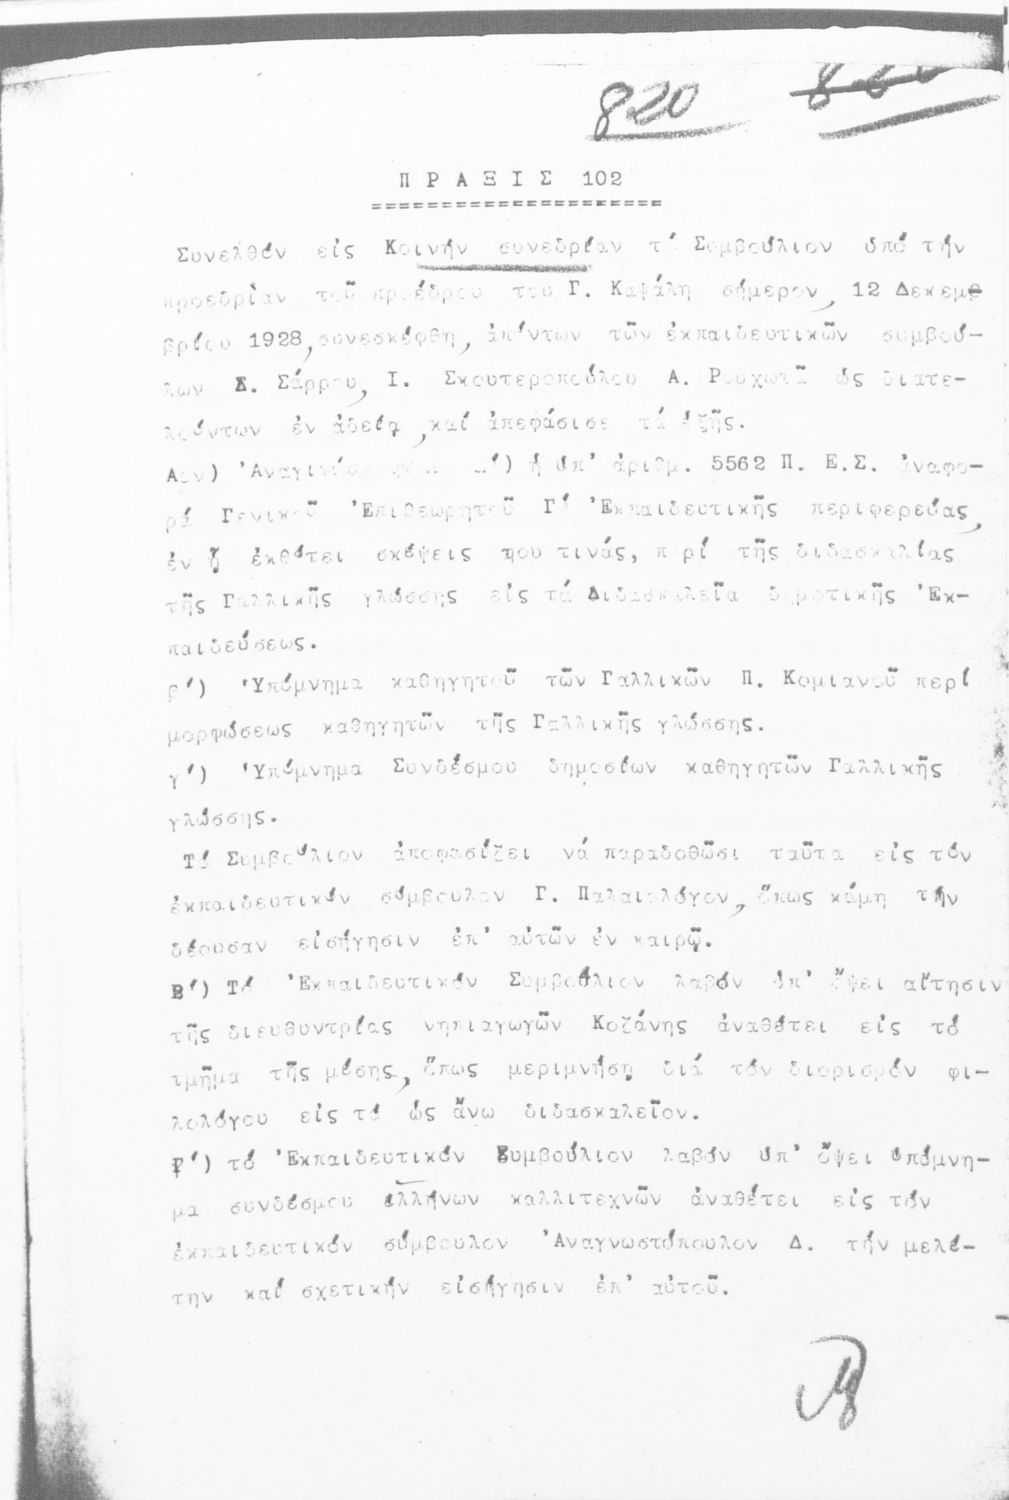 820
Π Ρ Α Ξ Ι Σ 102
=====================
Συνελθόν εἰς Κοινήν συνεδρίαν τό Συμβούλιον ὑπό τήν
προεδρίαν τοῦ προέδρου του Γ. Καψάλη σήμερον, 12 Δεκεμ
βρίου 1928, συνεσκέφθη, ἀπόντων τῶν ἐκπαιδευτικῶν συμβού-
λων Σ. Σάρρου, Ι. Σκουτεροπούλου Α. Ρουχωτᾶ ὡς διατε-
λούντων ἐν ἀδείᾳ, καί ἀπεφάσισε τά ἑξῆς.
Αον) α') ἡ ὑπ' ἀριθμ. 5562 Π. Ε.Σ. ἀναφο-
ρά Γενικοῦ Ἐπιθεωρητοῦ Γ' Ἐκπαιδευτικῆς περιφερείας,
ἐν ᾗ ἐκθέτει σκέψεις του τινάς, περί τῆς διδασκαλίας
τῆς Γαλλικῆς γλώσσης εἰς τά Διδασκαλεῖα δημοτικῆς Ἐκ-
παιδεύσεως.
β') Ὑπόμνημα καθηγητοῦ τῶν Γαλλικῶν Π. Κομιανοῦ περί
μορφώσεως καθηγητῶν τῆς Γαλλικῆς γλώσσης.
γ') Ὑπόμνημα Συνδέσμου δημοσίων καθηγητῶν Γαλλικῆς
γλώσσης.
Τό Συμβούλιον ἀποφασίζει νά παραδοθῶσι ταῦτα εἰς τόν
ἐκπαιδευτικόν σύμβουλον Γ. Παλαιολόγον, ὅπως κάμῃ τήν
δέουσαν εἰσήγησιν ἐπ' αὐτῶν ἐν καιρῷ.
Β') Τό Ἐκπαιδευτικόν Συμβούλιον λαβόν ὑπ' ὄψει αἴτησιν
τῆς διευθυντρίας νηπιαγωγῶν Κοζάνης ἀναθέτει εἰς τό
τμῆμα τῆς μέσης, ὅπως μεριμνήσῃ διά τόν διορισμόν φι-
λολόγου εἰς τό ὡς ἄνω διδασκαλεῖον.
Γ') τό Ἐκπαιδευτικόν Συμβούλιον λαβόν ὑπ' ὄψει ὑπόμνη-
μα συνδέσμου ἑλλήνων καλλιτεχνῶν ἀναθέτει εἰς τόν
ἐκπαιδευτικόν σύμβουλον Ἀναγνωστόπουλον Δ. τήν μελέ-
την καί σχετικήν εἰσήγησιν ἐπ' αὐτοῦ.